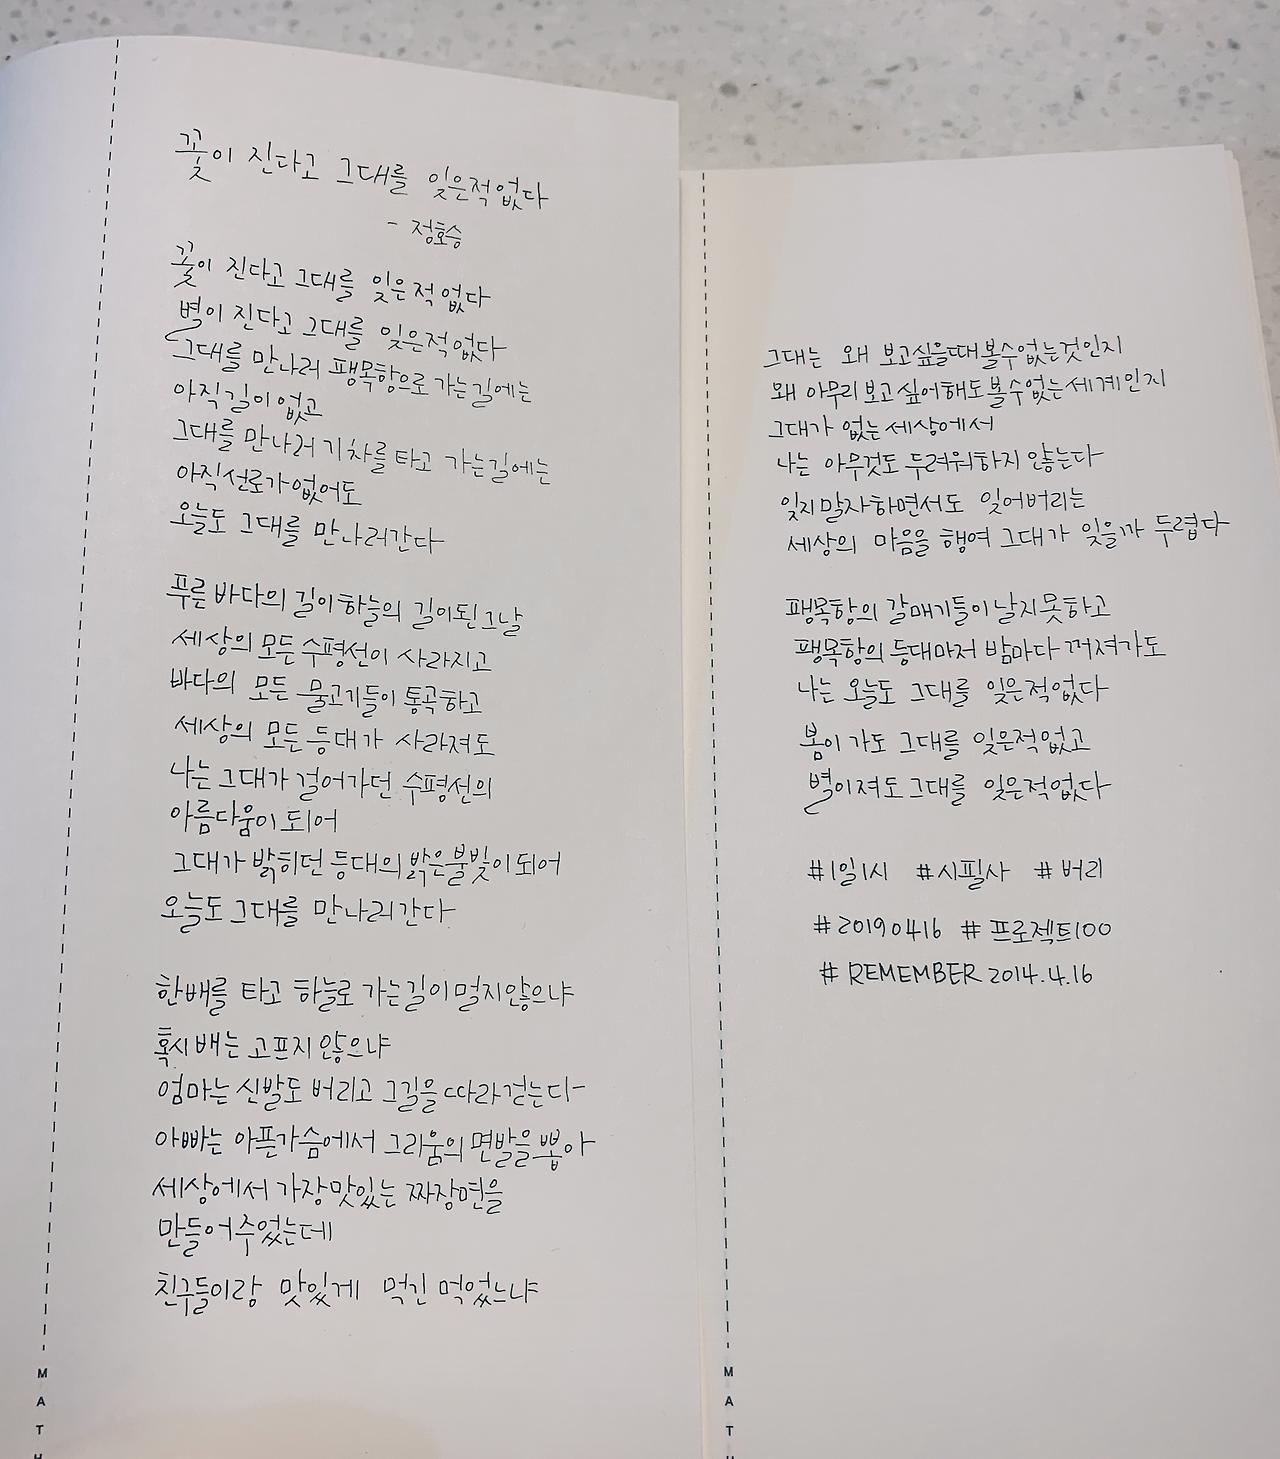 꽃이 진다고 그대를 잊은적없다
- 정호승
꽃이 진다고 그대를 잊은적 없다
별이 진다고 그대를 잊은적없다
그대를 만나러 팽목항으로 가는길에는
아직길이없고
그대를 만나러 기차를타고 가는길에는
아직선로가없어도
오늘도 그대를 만나러간다
푸른 바다의 길이하늘의 길이된그날
세상의 모든 수평선이 사라지고
바다의 모든 물고기들이 통곡하고
세상의 모든 등대가 사라져도
나는 그대가 걸어가던 수평선의
아름다움이 되어
그대가 밝히던 등대의 밝은불빛이되어
오늘도 그대를 만나러간다
한배를 타고 하늘로 가는길이멀지않으냐
혹시배는 고프지 않으냐
엄마는 신발도 버리고 그길을 따라걷는다
아빠는 아픈가슴에서 그리움의 면발을뽑아
세상에서 가장맛있는 짜장면을
만들어주었는데
친구들이랑 맛있게 먹긴 먹었느냐
그대는 왜 보고싶을때볼수없는것인지
왜 아무리보고싶어해도볼수없는세계인지
그대가 없는세상에서
나는 아무것도 두려워하지 않는다
잊지말자하면서도 잊어버리는
세상의 마음을 행여 그대가 잊을까 두렵다
팽목항의 갈매기들이날지못하고
팽목항의 등대마저 밤마다 꺼져가도
나는 오늘도 그대를 잊은적없다
봄이가도 그대를 잊은적없고
별이져도 그대를 잊은적없다
#1일1시 #시필사 #버리
#20190416 #프로젝트100
#REMEMBER 2014.4.16
M
A
T
H
M
A
T
H